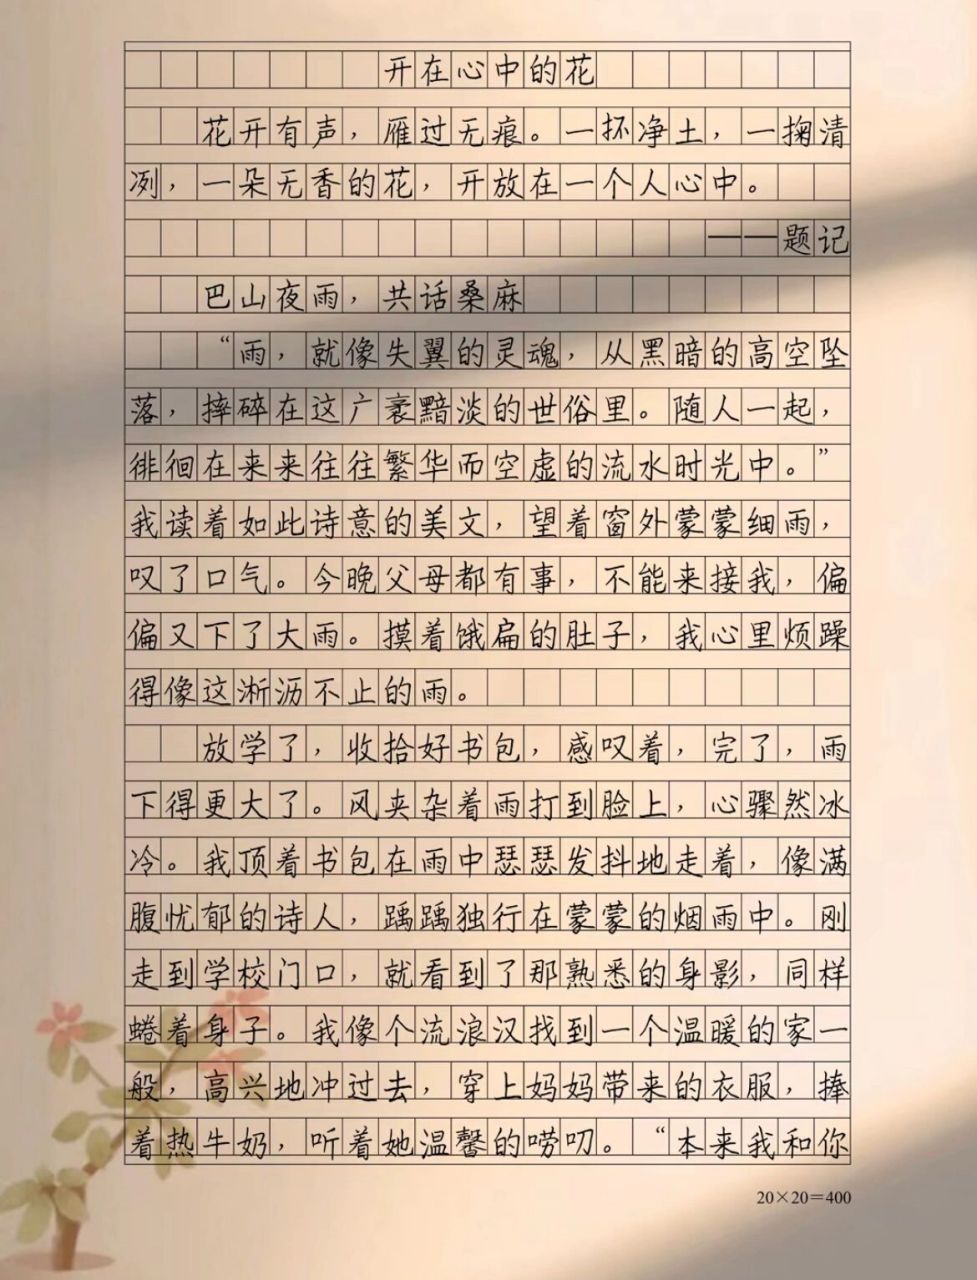 开在心中的花
花开有声，雁过无痕。一抔净土，一掬清
冽，一朵无香的花，开放在一个人心中。
——题记
巴山夜雨，共话桑麻
“雨，就像失翼的灵魂，从黑暗的高空坠
落，摔碎在这广袤黯淡的世俗里。随人一起，
徘徊在来来往往繁华而空虚的流水时光中。”
我读着如此诗意的美文，望着窗外蒙蒙细雨，
叹了口气。今晚父母都有事，不能来接我，偏
偏又下了大雨。摸着饿扁的肚子，我心里烦躁
得像这淅沥不止的雨。
放学了，收拾好书包，感叹着，完了，雨
下得更大了。风夹杂着雨打到脸上，心骤然冰
冷。我顶着书包在雨中瑟瑟发抖地走着，像满
腹忧郁的诗人，踽踽独行在蒙蒙的烟雨中。刚
走到学校门口，就看到了那熟悉的身影，同样
蜷着身子。我像个流浪汉找到一个温暖的家一
般，高兴地冲过去，穿上妈妈带来的衣服，捧
着热牛奶，听着她温馨的唠叨。“本来我和你
20×20=400